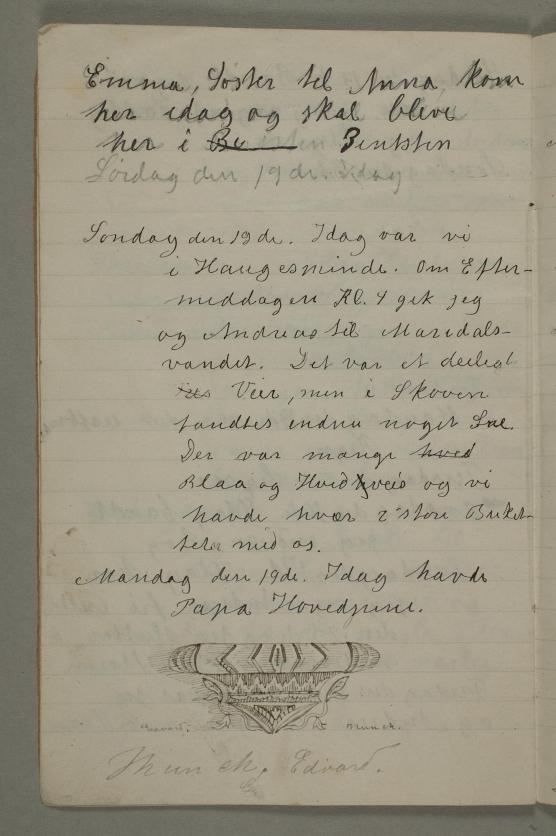 Emma, Søster til Anna kom
her idag og skal blive
her i Be Pintsten
Lørdag den 19de. Idag
Søndag den 19de. Idag var vi
i Haugesminde. Om Efter-
middagen Kl. 4 gik jeg
og Andreas til Maridals-
vandet. Det var et deiligt
Veir, men i Skoven
fandtes endnu noget Sne.
Der var mange hved
Blaa og Hvidtveis og vi
havde hvær 2 store Buket-
ter med os.
Mandag den 19de. Idag havde
Papa Hovedpine.
Edvard. Munch.
Munch, Edvard.